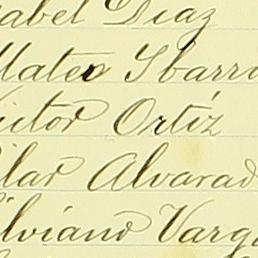 abel Diaz
Mateo Ybarr
ictor Ortíz
ilar Alvarad
ilviano Varga